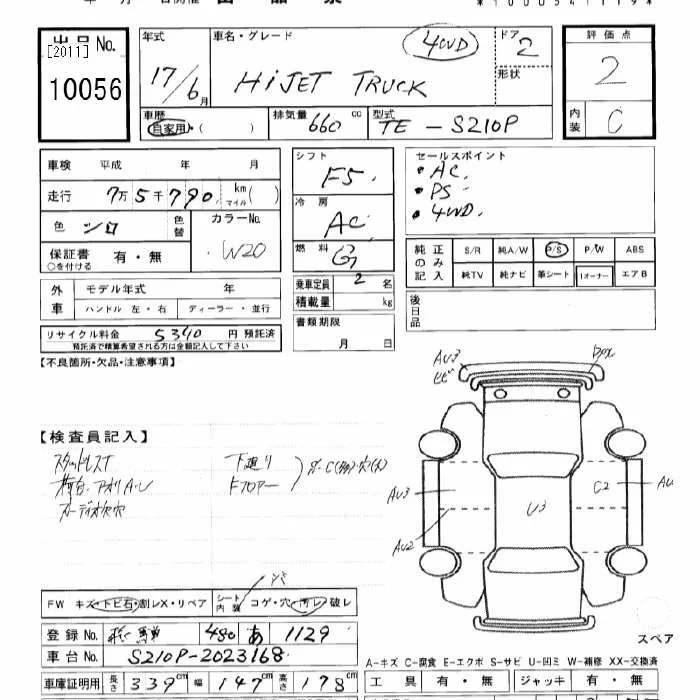 出品No.
[2011]
10056
年式
17/6月
車名・グレード
4WD
HiJET TRUCK
ドア
2
形状
評価点
2
内装
C
車歴
自家用・( )
排気量
660 cc
型式
TE-S210P
車検 平成 年 月
走行 7万5千790 km マイル( )
色 シロ
色替
カラーNo.
W20
保証書 有・無
○を付ける
外車
モデル年式 年
ハンドル 左・右 ディーラー・並行
リサイクル料金 5340 円 預託済
預託済で積算希望される方は金額記入して下さい
シフト
F5
冷房
AC
燃料
G
乗車定員 2 名
積載量 kg
書類期限
月 日
セールスポイント
・AC.
・PS.
・4WD.
純正のみ記入
S/R 純A/W P/S P/W ABS
純TV 純ナビ 革シート 1オーナー エアB
後日品
【不良箇所・欠品・注意事項】
【検査員記入】
スタッドレスT
下廻り
Fフロアー
AU3
ヒビ
AU3
U3
C2
AU
AU2
FW キズ・トビ石・割レX・リペア
シート内装
コゲ・穴・汚レ・破レ
登録No.
480 あ 1129
車台No.
S210P-2023168
車庫証明用 長さ 339cm 幅 147cm 高さ 178cm
スペア
A-キズ C-腐食 E-エクボ S-サビ U-凹ミ W-補修 XX-交換済
工具 有・無 ジャッキ 有・無